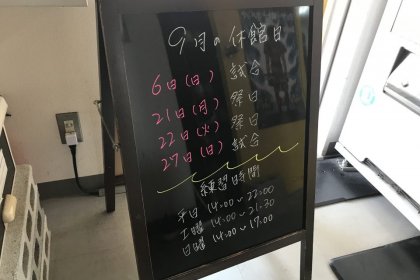 9月の休館日
6日(日) 試合
21日(月) 祭日
22日(火) 祭日
27日(日) 試合
練習時間
平日 14:00~22:00
土曜 14:00~21:30
日曜 14:00~17:00